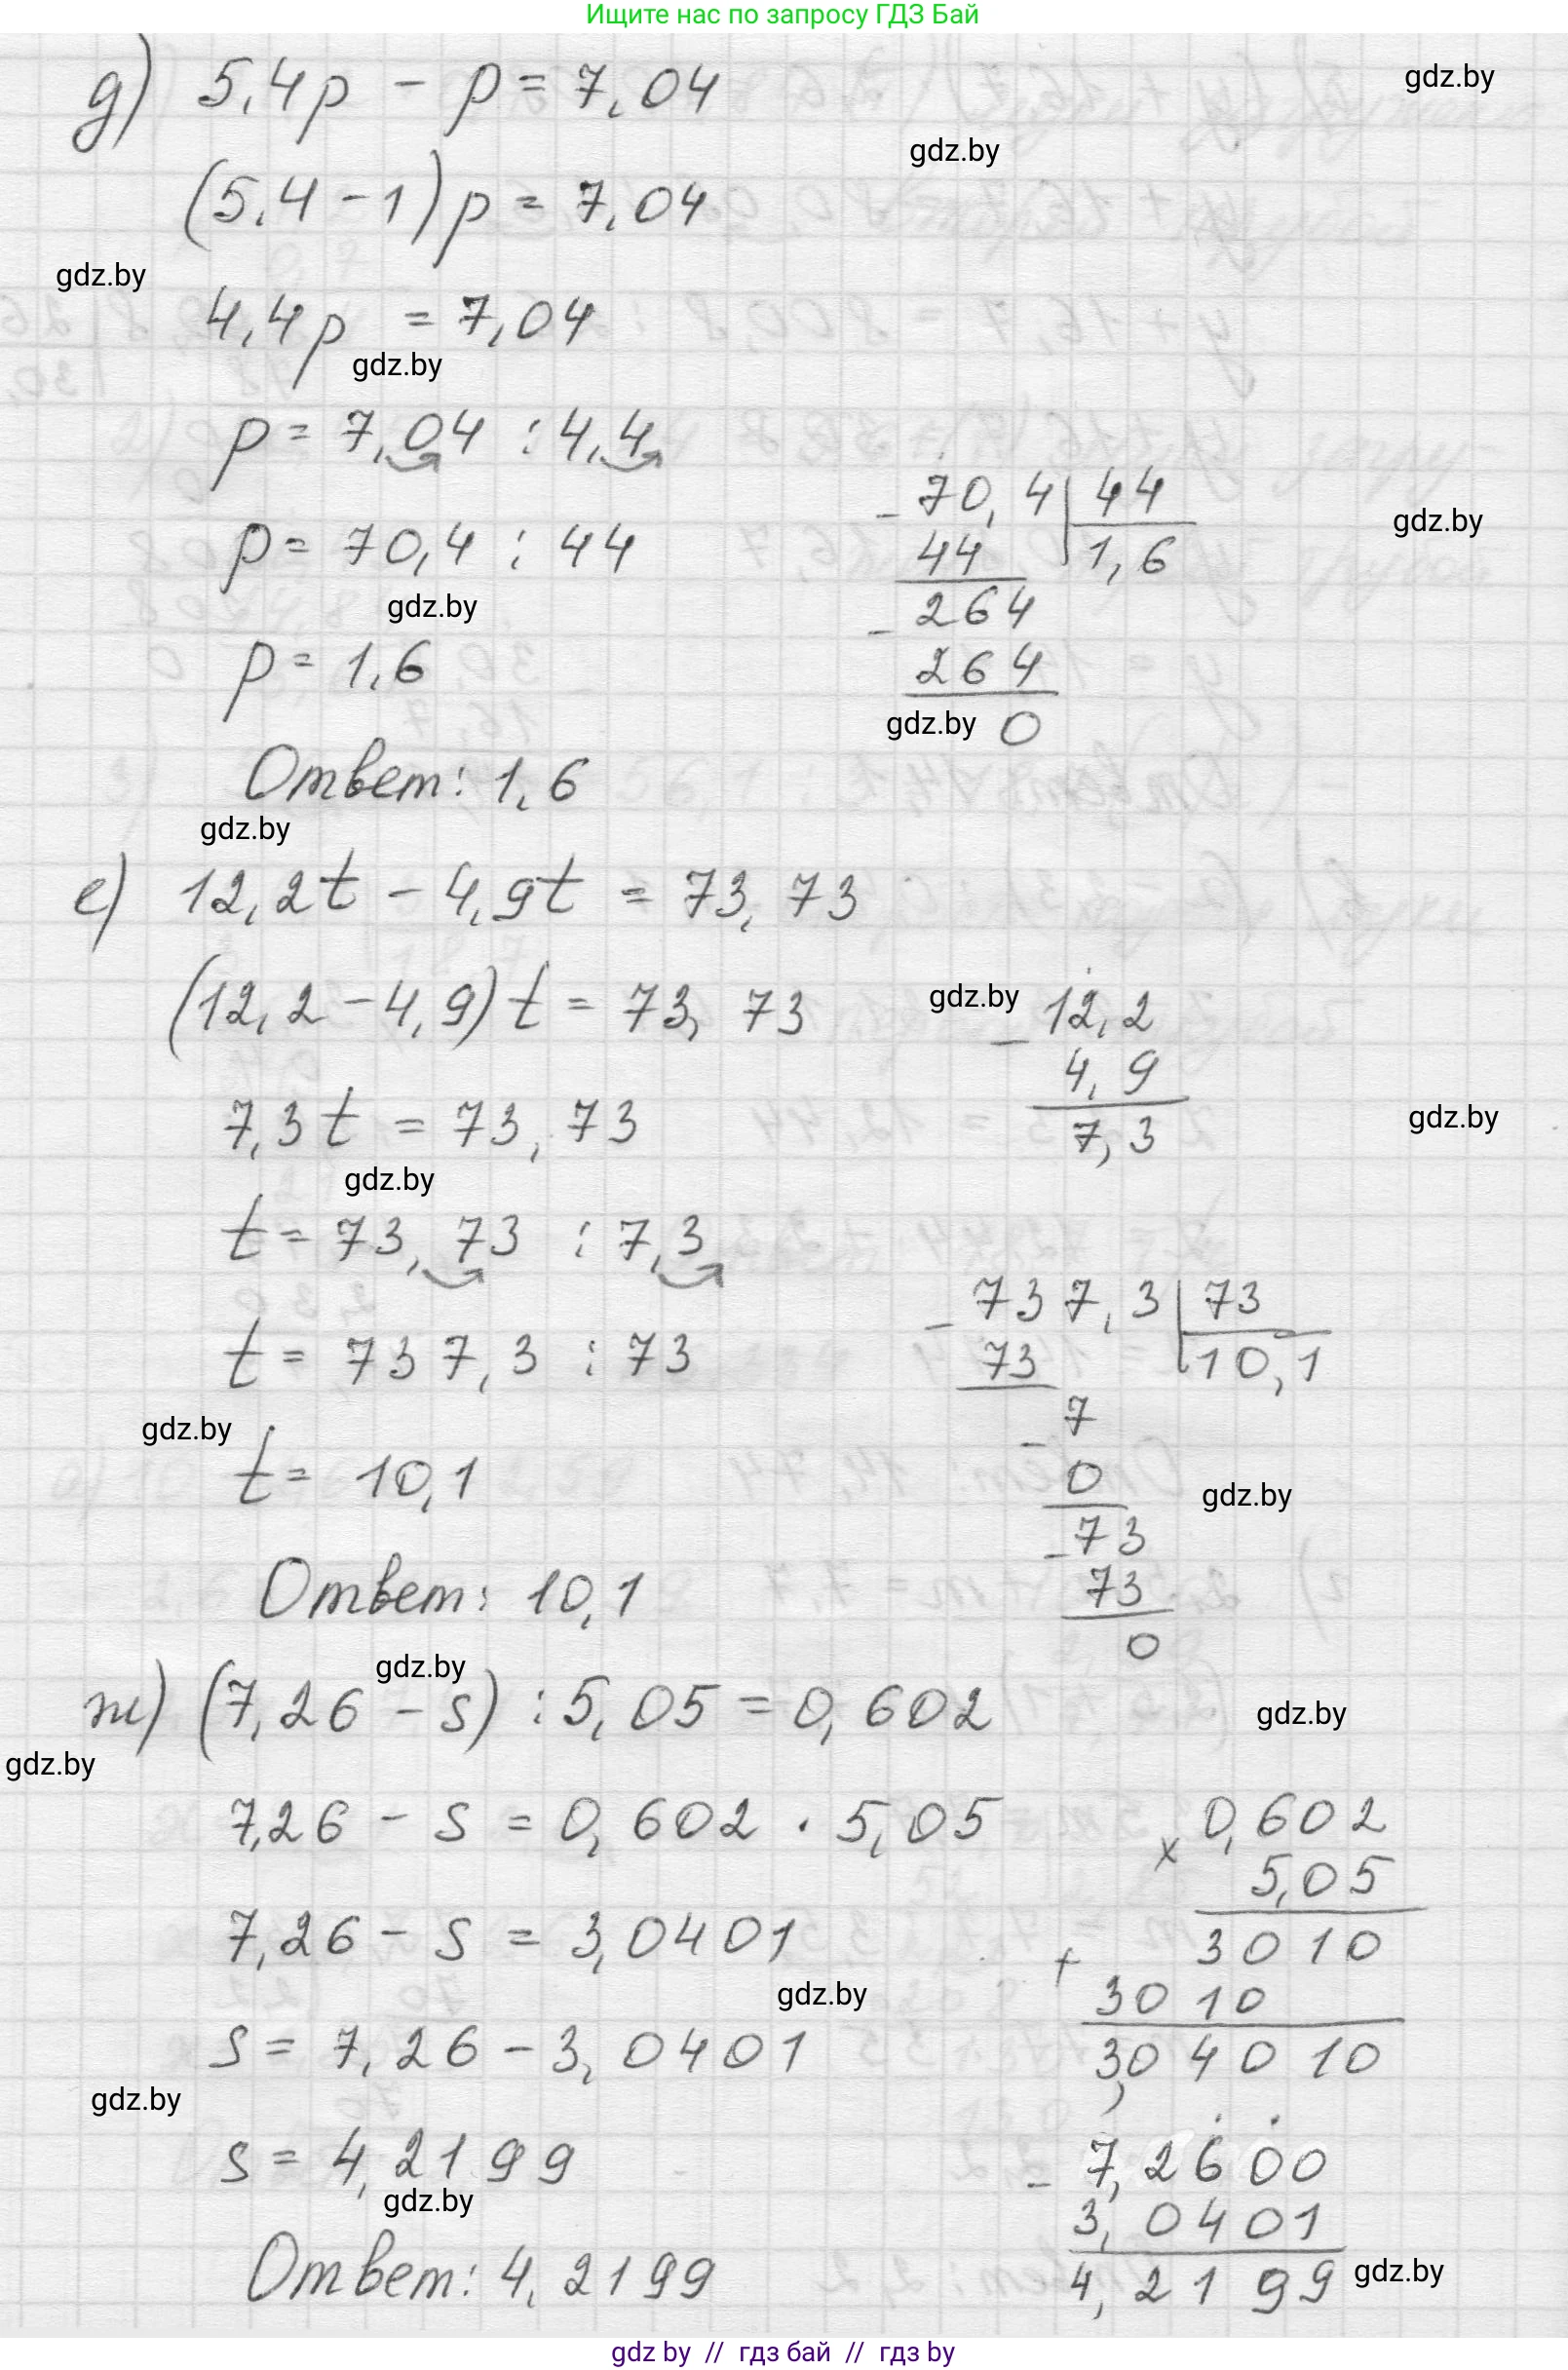 Ищите нас по запросу ГДЗ Бай
д) 5,4p - p = 7,04
gdz.by
gdz.by
(5,4 - 1) p = 7,04
gdz.by
4,4p = 7,04
gdz.by
p = 7,04 : 4,4
70,4 | 44
gdz.by
p = 70,4 : 44
- 44 | 1,6
gdz.by
264
p = 1,6
- 264
gdz.by
0
Ответ: 1,6
gdz.by
е) 12,2t - 4,9t = 73,73
(12,2 - 4,9) t = 73,73
gdz.by
- 12,2
4,9
7,3t = 73,73
7,3
gdz.by
gdz.by
t = 73,73 : 7,3
- 737,3 | 73
t = 737,3 : 73
73 | 10,1
gdz.by
- 7
t = 10,1
0
gdz.by
- 73
Ответ: 10,1
73
0
gdz.by
ж) (7,26 - s) : 5,05 = 0,602
gdz.by
gdz.by
7,26 - s = 0,602 · 5,05
× 0,602
5,05
7,26 - s = 3,0401
3010
+ 3010
gdz.by
s = 7,26 - 3,0401
3,04010
gdz.by
s = 4,2199
- 7,2600
gdz.by
3,0401
Ответ: 4,2199
4,2199
gdz.by
gdz by // гдз бай // гдз by